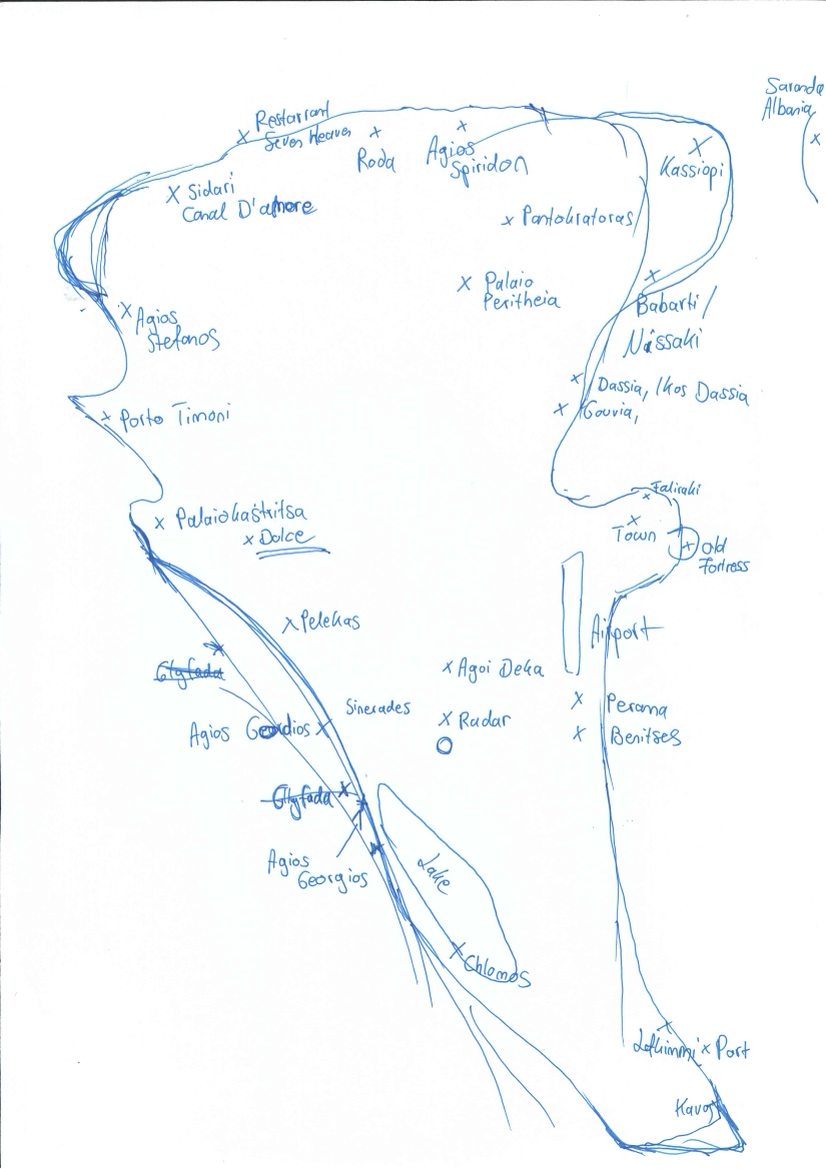 Saranda
Albania
Restarrant
Seven Heaven
Roda
Agios
Spiridon
Kassiopi
Sidari
Canal D'amore
Pantokratoras
Palaio
Peritheia
Babarti/
Nissaki
Agios
Stefanos
Dassia, Ikos Dassia
Gouvia,
Porto Timoni
Faliraki
Palaiokastritsa
Dolce
Town
Old
Fortress
Pelekas
Airport
Glyfada
Agoi Deka
Sinerades
Perama
Agios Geordios
Radar
Benitses
Glyfada
Agios
Georgios
Lake
Chlomos
Lefkimmi
Port
Kavos